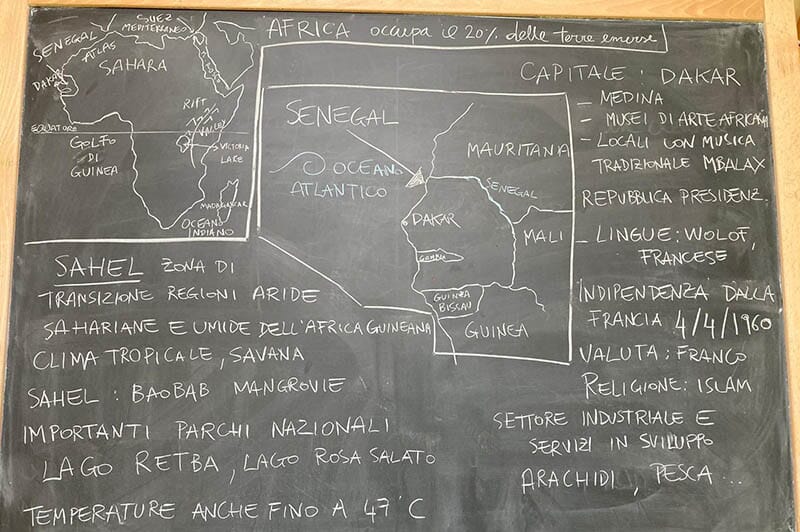 AFRICA occupa il 20% delle terre emerse
SUEZ
MEDITERRANEO
SENEGAL
ATLAS
DAKAR
SAHARA
RIFT
VALLEY
EQUATORE
GOLFO
DI
GUINEA
VICTORIA
LAKE
MADAGASCAR
OCEANO
INDIANO
SENEGAL
OCEANO
ATLANTICO
MAURITANIA
SENEGAL
DAKAR
MALI
GAMBIA
GUINEA
BISSAU
GUINEA
CAPITALE : DAKAR
- MEDINA
- MUSEI DI ARTE AFRICANA
- LOCALI CON MUSICA
TRADIZIONALE MBALAX
REPUBBLICA PRESIDENZ.
- LINGUE: WOLOF,
FRANCESE
INDIPENDENZA DALLA
FRANCIA 4/4/1960
VALUTA: FRANCO
RELIGIONE: ISLAM
SETTORE INDUSTRIALE E
SERVIZI IN SVILUPPO
ARACHIDI, PESCA...
SAHEL ZONA DI
TRANSIZIONE REGIONI ARIDE
SAHARIANE E UMIDE DELL'AFRICA GUINEANA
CLIMA TROPICALE, SAVANA
SAHEL : BAOBAB MANGROVIE
IMPORTANTI PARCHI NAZIONALI
LAGO RETBA, LAGO ROSA SALATO
TEMPERATURE ANCHE FINO A 47°C